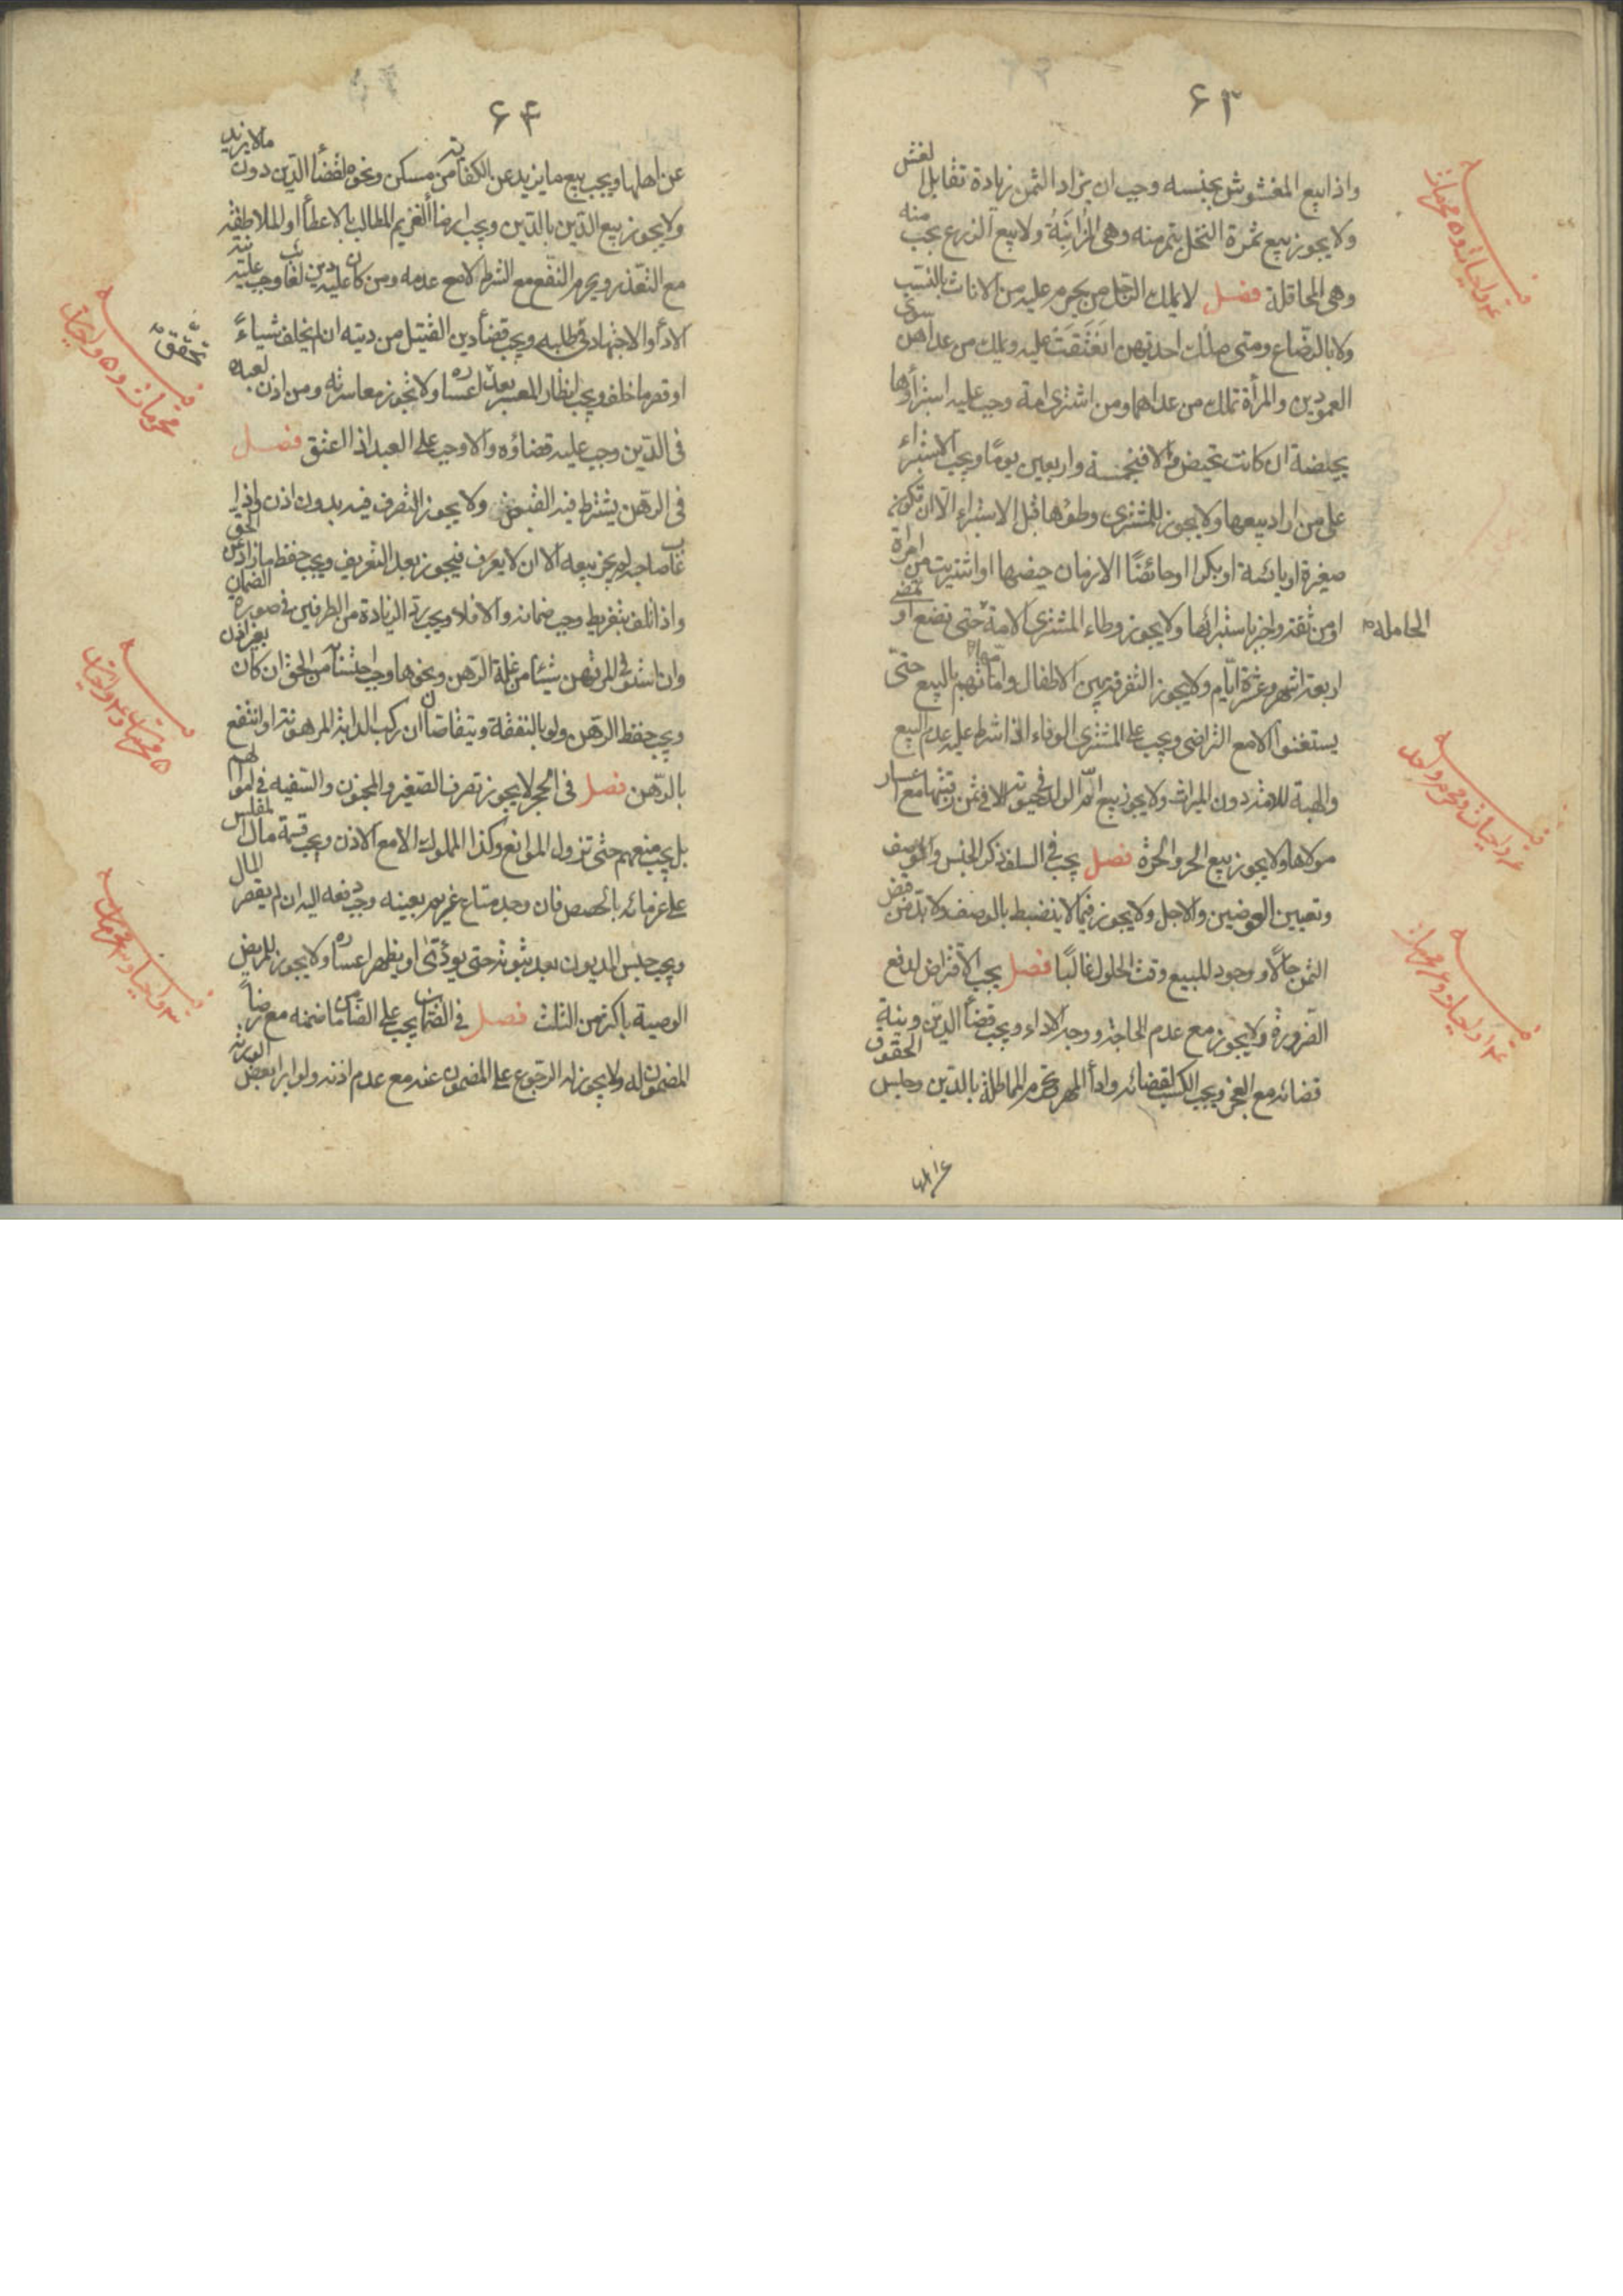 ۶۳
واذا بيع المغشوش بجنسه وجب ان يزاد الثمن زيادة تقابل الغش
ولا يجوز بيع ثمرة النخل بتمر منه وهى المزابنة ولا بيع الزرع بحب منه
وهى المحاقلة فصل لا يملك الرجل من يحرم عليه من الاناث بالنسب
ولا بالرضاع ومتى ملك احديهن انعتقت عليه ويملك من عداهن سوى
العمودين والمرأة تملك من عداهما ومن اشترى امة وجب عليه استبراؤها
بحيضة ان كانت تحيض والا فبخمسة واربعين يوما ويجب الاستبراء
على من اراد بيعها ولا يجوز للمشترى وطؤها قبل الاستبراء الا ان تكون
صغيرة او يائسة او بكرا او حائضا الا زمان حيضها او اشتريت من امرأة
او من ثقة واخبر باستبرائها ولا يجوز وطاء المشترى الامة حتى تضع او تمضى
الحامله
اربعة اشهر وعشرة ايام ولا يجوز التفرقة بين الاطفال وامهاتهم بالبيع حتى
يستغنوا الا مع التراضى ويجب على المشترى الوفاء اذا شرط عليه عدم البيع
والهبة للامة دون الميراث ولا يجوز بيع ام الولد فى حيوته الا فى ثمن رقبتها مع اعسار
مولاها ولا يجوز بيع الحر والحرة فصل يجب فى السلف ذكر الجنس والوصف
وتعيين العوضين والاجل ولا يجوز فيما لا ينضبط بالوصف ولا بد من قبض
الثمن حالا ووجود المبيع وقت الحلول غالبا فصل يجب الاقتراض لدفع
الضرورة ولا يجوز مع عدم الحاجة ووجه الاداء ويجب قضأ الدين ونية
قضائه مع العجز ويجب الكسب لقضائه وادأ المهر وتحرم المماطلة بالدين وحبس الحقوق
۶۴
عن اهلها ويجب بيع ما يزيد عن الكفاية من مسكن ونحوه لقضأ الدين دون ما لا يزيد
ولا يجوز بيع الدين بالدين ويجب ارضأ الغريم المطالب بالاعطأ او الملاطفة
مع التعذر ويحرم النفع مع الشرط لا مع عدمه ومن كان عليه دين لغائب وجب عليه نية
الادأ والاجتهاد فى طلبه ويجب قضأ دين القتيل من ديته ان لم يخلف شياء
او قصر ما خلف ويجب انظار المعسر بعد تحقق اعساره ولا تجوز معاسرته ومن اذن لعبده
فى الدين وجب عليه قضاؤه والا وجب على العبد اذا العتق فصل
فى الرهن يشترط فيه القبض ولا يجوز التصرف فيه بدون اذن واذا
غاب صاحبه لم يجز بيعه الا ان لا يعرف فيجوز بعد التعريف ويجب حفظ ما زاد عن الحق
واذا تلف بتفريط وجب ضمانه والا فلا ويجب رد الزيادة من الطرفين فى صورة الضمان
وان استوفى المرتهن شيئا من غلة الرهن ونحوها وجب احتسابه من الحق ان كان بغير اذن
ويجب حفظ الرهن ولو بالنفقة ويتقاصان ان ركب الدابة المرهونة او انتفع
بالرهن فصل فى الحجر لا يجوز تصرف الصغير والمجنون والسفيه فى اموالهم
بل يجب منعهم حتى تزول الموانع وكذا المملوك الا مع الاذن ويجب قسمة مال المفلس
على غرمائه بالحصص فان وجد متاع غريم بعينه وجب دفعه اليه ان لم يقصر المال
ويجب حبس المديون بعد ثبوته حتى يؤدى او يظهر اعساره ولا يجوز للمريض
الوصية باكثر من الثلث فصل فى الضمان يجب على الضامن ما ضمنه مع رضأ
المضمون له ولا يجوز له الرجوع على المضمون عنه مع عدم اذنه ولو ابرا بعض الورثة